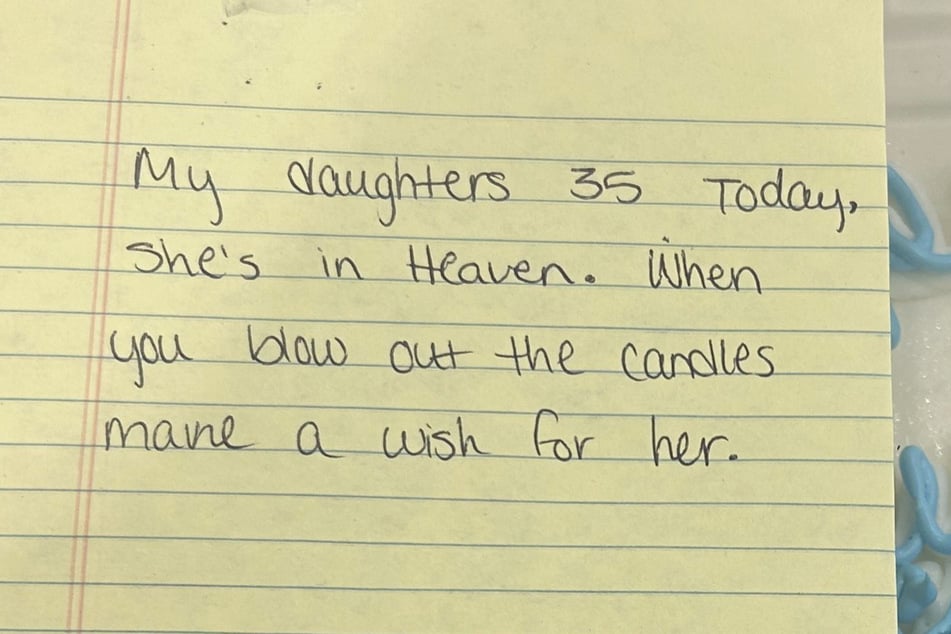 My daughters 35 Today,
She's in Heaven. When
you blow out the candles
make a wish for her.